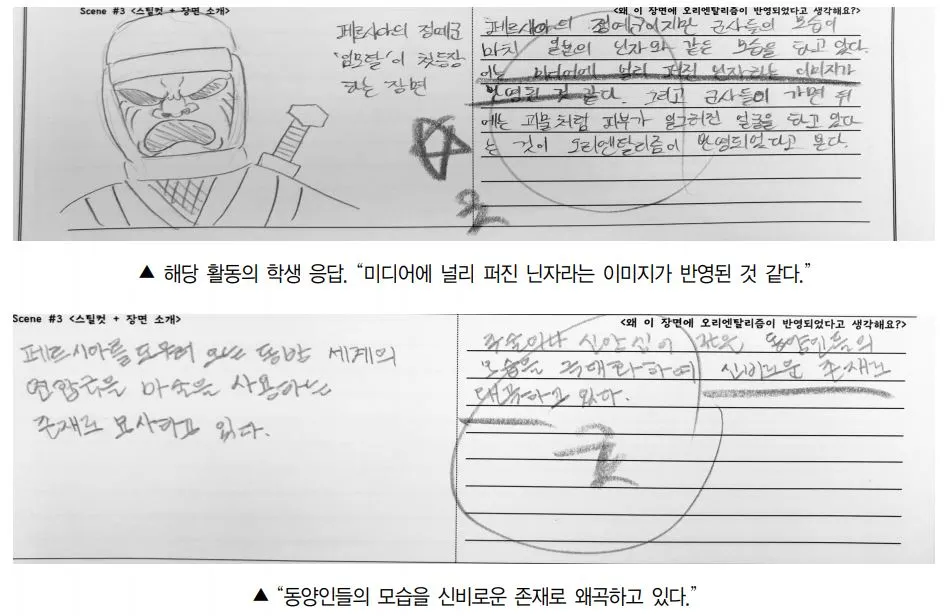 Scene #3 <스틸컷 + 장면 소개>
페르시아의 정예군
'임모탈'이 첫등장
하는 장면
<왜 이 장면에 오리엔탈리즘이 반영되었다고 생각해요?>
페르시아의 정예군이지만 군사들의 모습이
마치 일본의 닌자와 같은 모습을 하고 있다.
이는 미디어에 널리 퍼진 닌자라는 이미지가
반영된 것 같다. 그리고 군사들이 가면 뒤
에는 괴물처럼 피부가 일그러진 얼굴을 하고 있다
는 것이 오리엔탈리즘이 반영되었다고 본다.
▲ 해당 활동의 학생 응답. “미디어에 널리 퍼진 닌자라는 이미지가 반영된 것 같다.”
Scene #3 <스틸컷 + 장면 소개>
페르시아를 도우러 오는 동방 세계의
연합군을 마술을 사용하는
존재로 묘사하고 있다.
<왜 이 장면에 오리엔탈리즘이 반영되었다고 생각해요?>
주술이나 신앙심이 깊은 동양인들의
모습을 극대화하여 신비로운 존재로
왜곡하고 있다.
▲ “동양인들의 모습을 신비로운 존재로 왜곡하고 있다.”